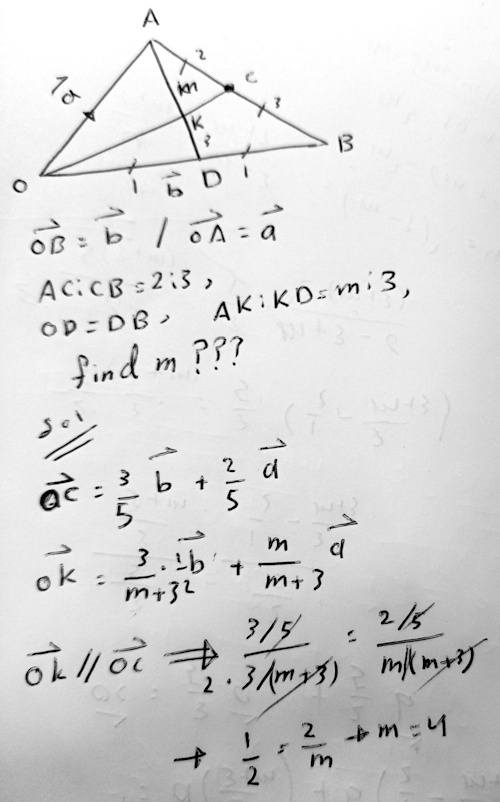 A
2
m
C
a
K
3
3
B
O
1
b
D
1
OB = b / OA = a
AC:CB = 2:3,
OD = DB, AK:KD = m:3,
find m ???
sol
OC = 3/5 b + 2/5 a
OK = 3/m+3 · 1/2 b + m/m+3 a
OK // OC ⇒ 3/5 / 2 · 3/(m+3) = 2/5 / m/(m+3)
→ 1/2 = 2/m → m = 4